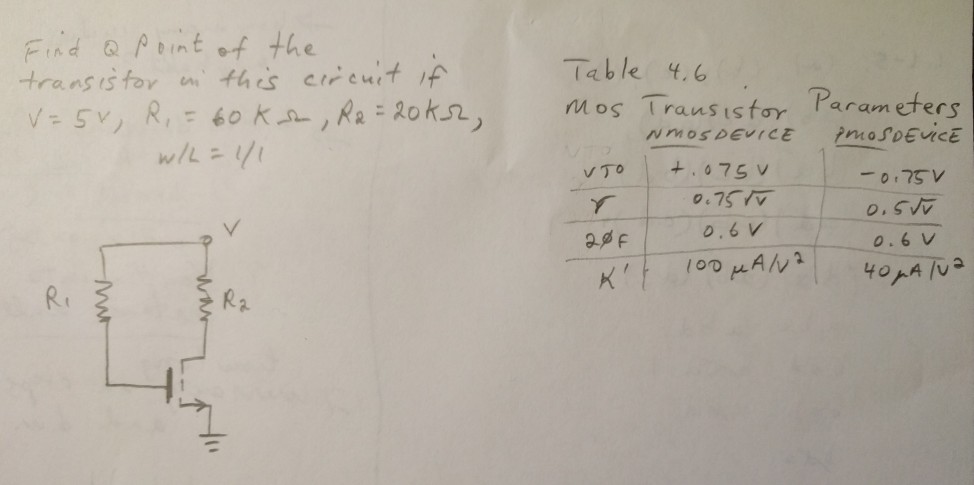 Find Q Point of the
transistor in this circuit if
V = 5V, R1 = 60 KΩ, R2 = 20KΩ,
W/L = 1/1
Table 4.6
MOS Transistor Parameters
NMOS DEVICE PMOS DEVICE
VTO +.075 V -0.75V
γ 0.75√V 0.5√V
2ØF 0.6 V 0.6 V
K' 100 μA/V² 40 μA/V²
V
R1 R2